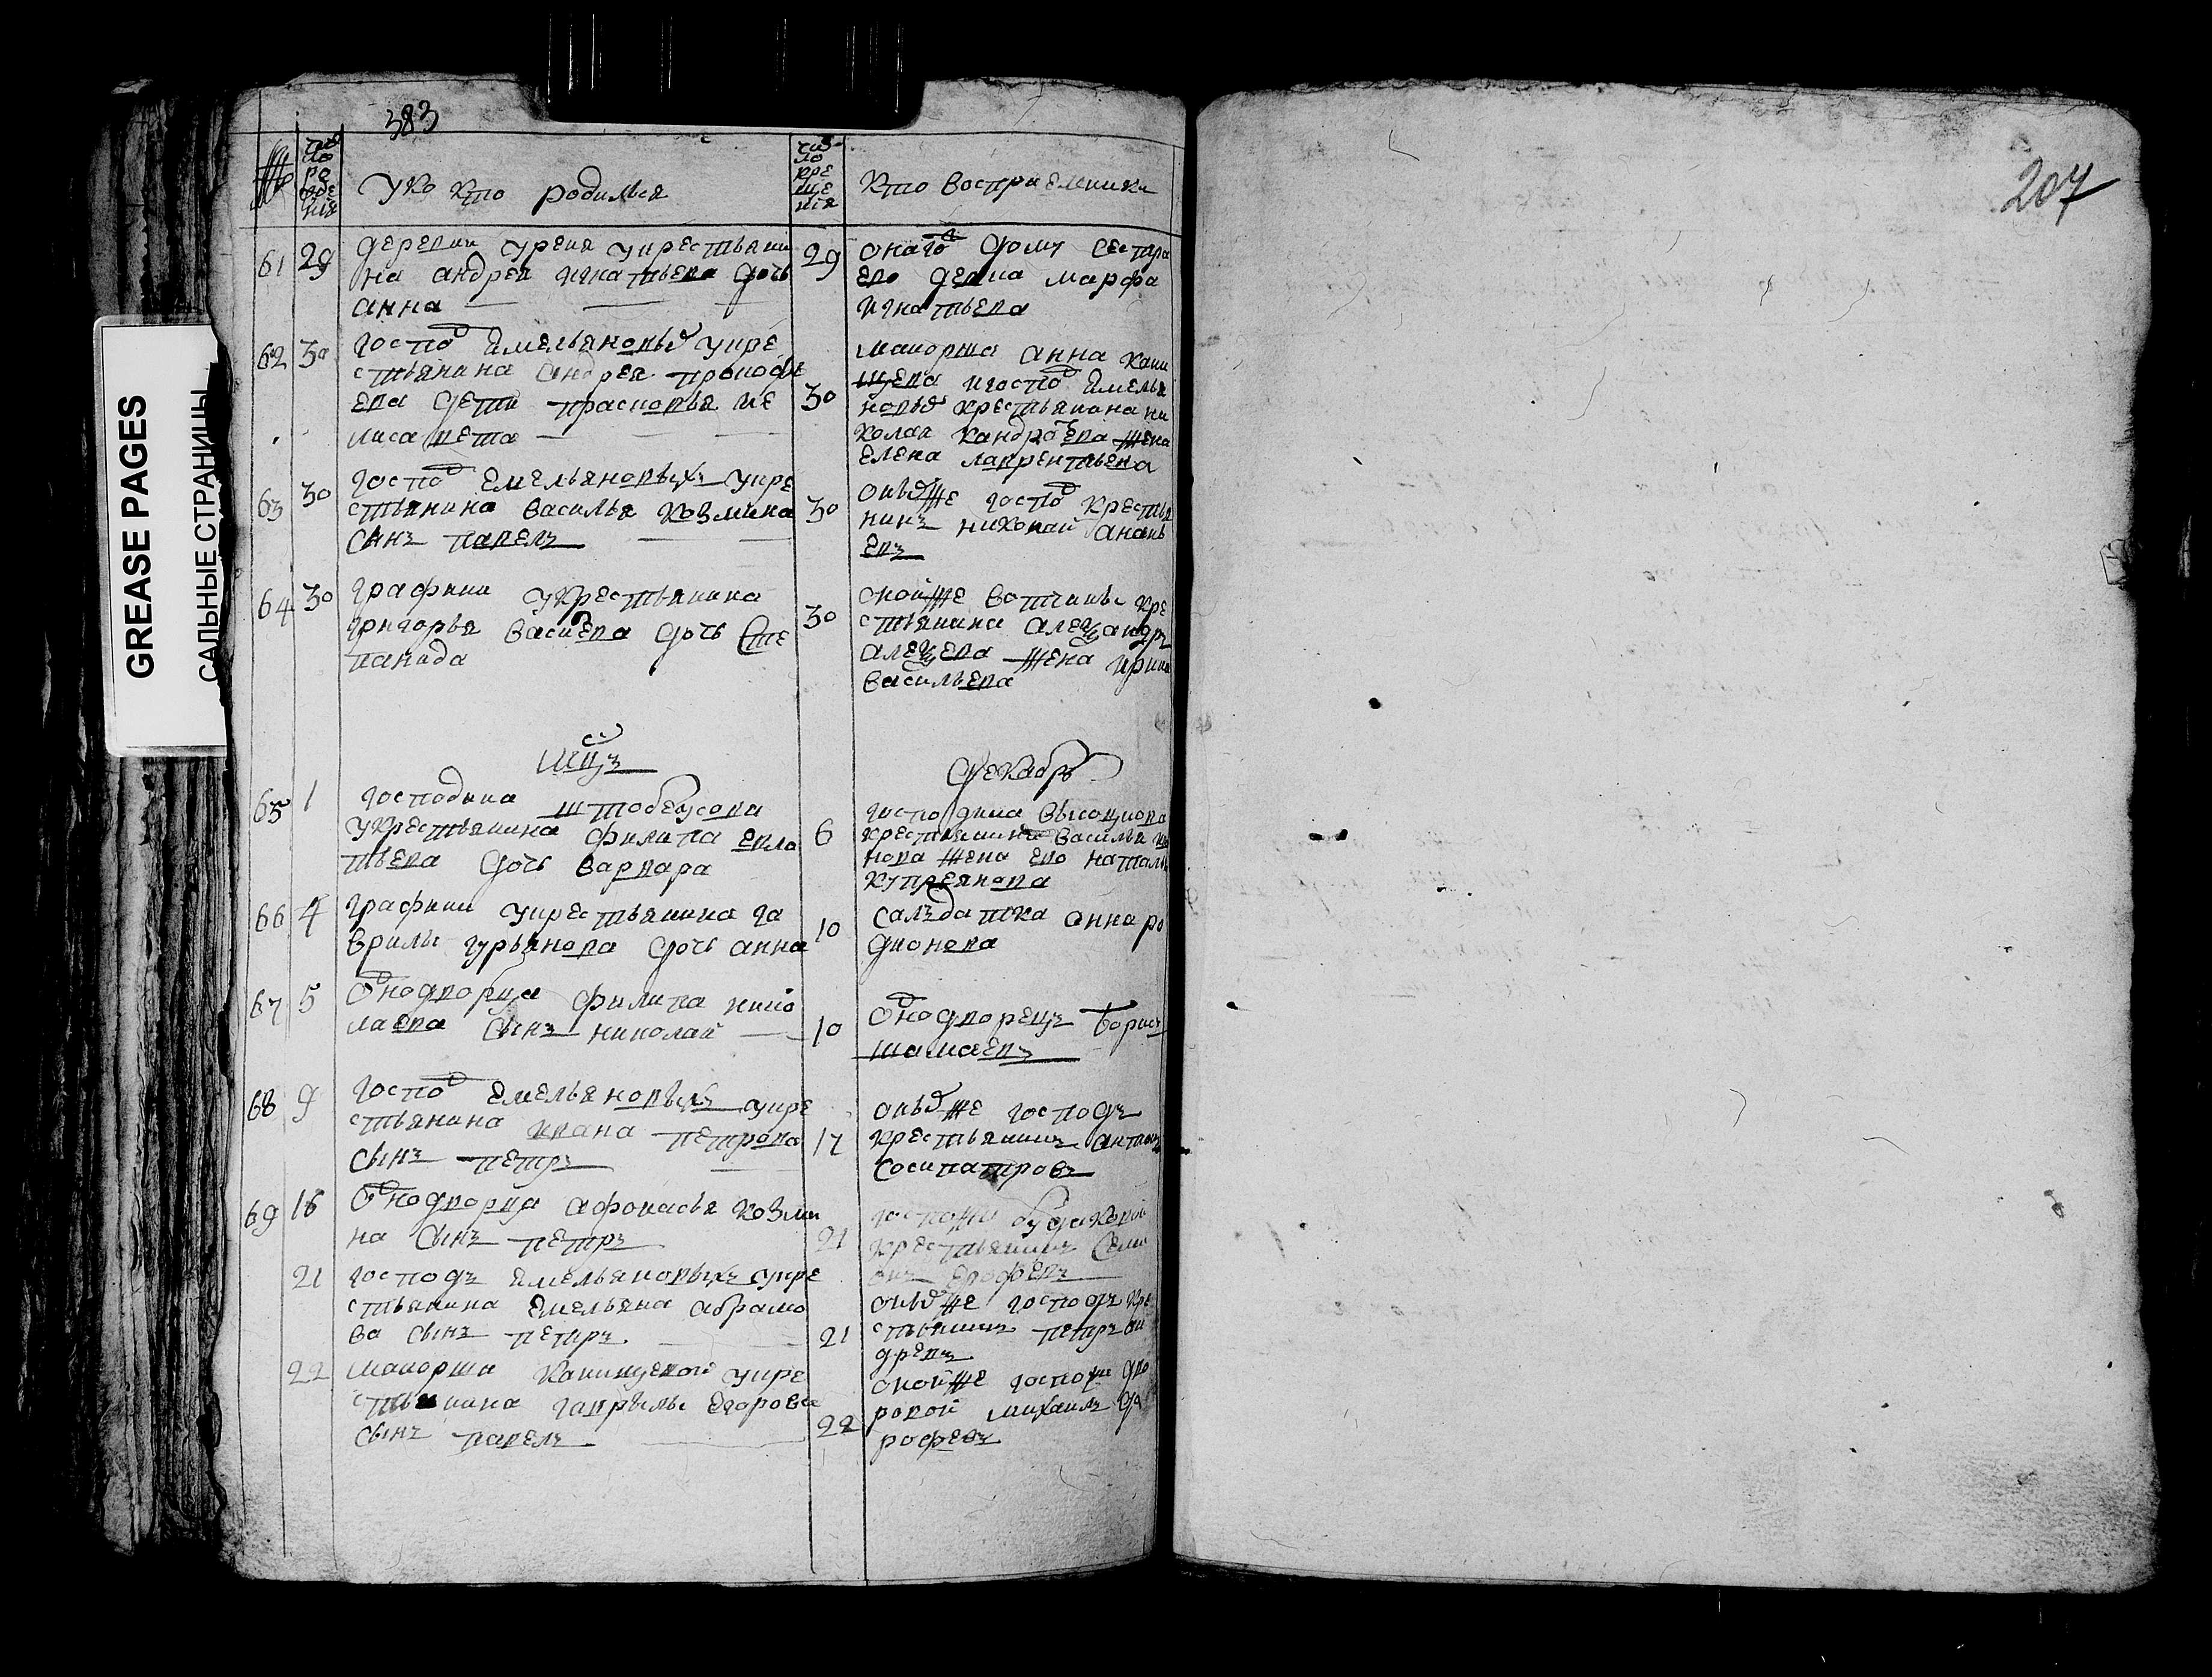 383
207
GREASE PAGES
САЛЬНЫЕ СТРАНИЦЫ
№ число рождения У кого кто родился число крещения Кто восприемники
61 29 деревни Урена у крестьяни
на андрея игнатьева дочь
анна
29 онаго дому сестра
ево девка марфа
игнатьева
62 30 госпо д емельяновых у кре
стьянина андрея прокофь
ева дети прасковья и е
лисавета
30 маиорша анна
и госпо д емелья
новых крестьянина ни
колая кандратева жена
елена лаврентьева
63 30 госпо д емельяновыхъ у кре
стьянина василья козмина
сынъ павелъ
30 оныхже госпо д крестья
нинъ николай анань
евъ
64 30 графини у крестьянина
григорья васиева дочь сте
панида
30 онойже вотчины кре
стьянина алеѯандръ
алеѯева жена ирина
васильева
мцъ Декабрь
65 1 господина
у крестьянина филипа евла
тьева дочь варвара
6 господина
крестьянина василья
нова жена ево наталья
купреянова
66 4 графини у крестьянина га
врилы гурьянова дочь анна
10 салъдатка анна ро
дионова
67 5 однодворца филипа нико
лаева сынъ николай
10 однодворецъ борисъ
шамаевъ
68 9 госпо д емельяновыхъ у кре
стьянина ивана петрова
сынъ петръ
17 оныхже господъ
крестьянинъ антонъ
сосипатровъ
69 16 однодворца афонасья козми
на сынъ петръ
21 госпожи
крестьянинъ семи
онъ ерофеевъ
21 господъ емельяновыхъ у кре
стьянина емельяна абрамо
ва сынъ петръ
21 оныхже господъ кре
стьянинъ петръ ан
древъ
22 маиорши у кре
стьянина гаврилы егорова
сынъ павелъ
22 онойже госпожи дво
ровой михаилъ
рофеевъ